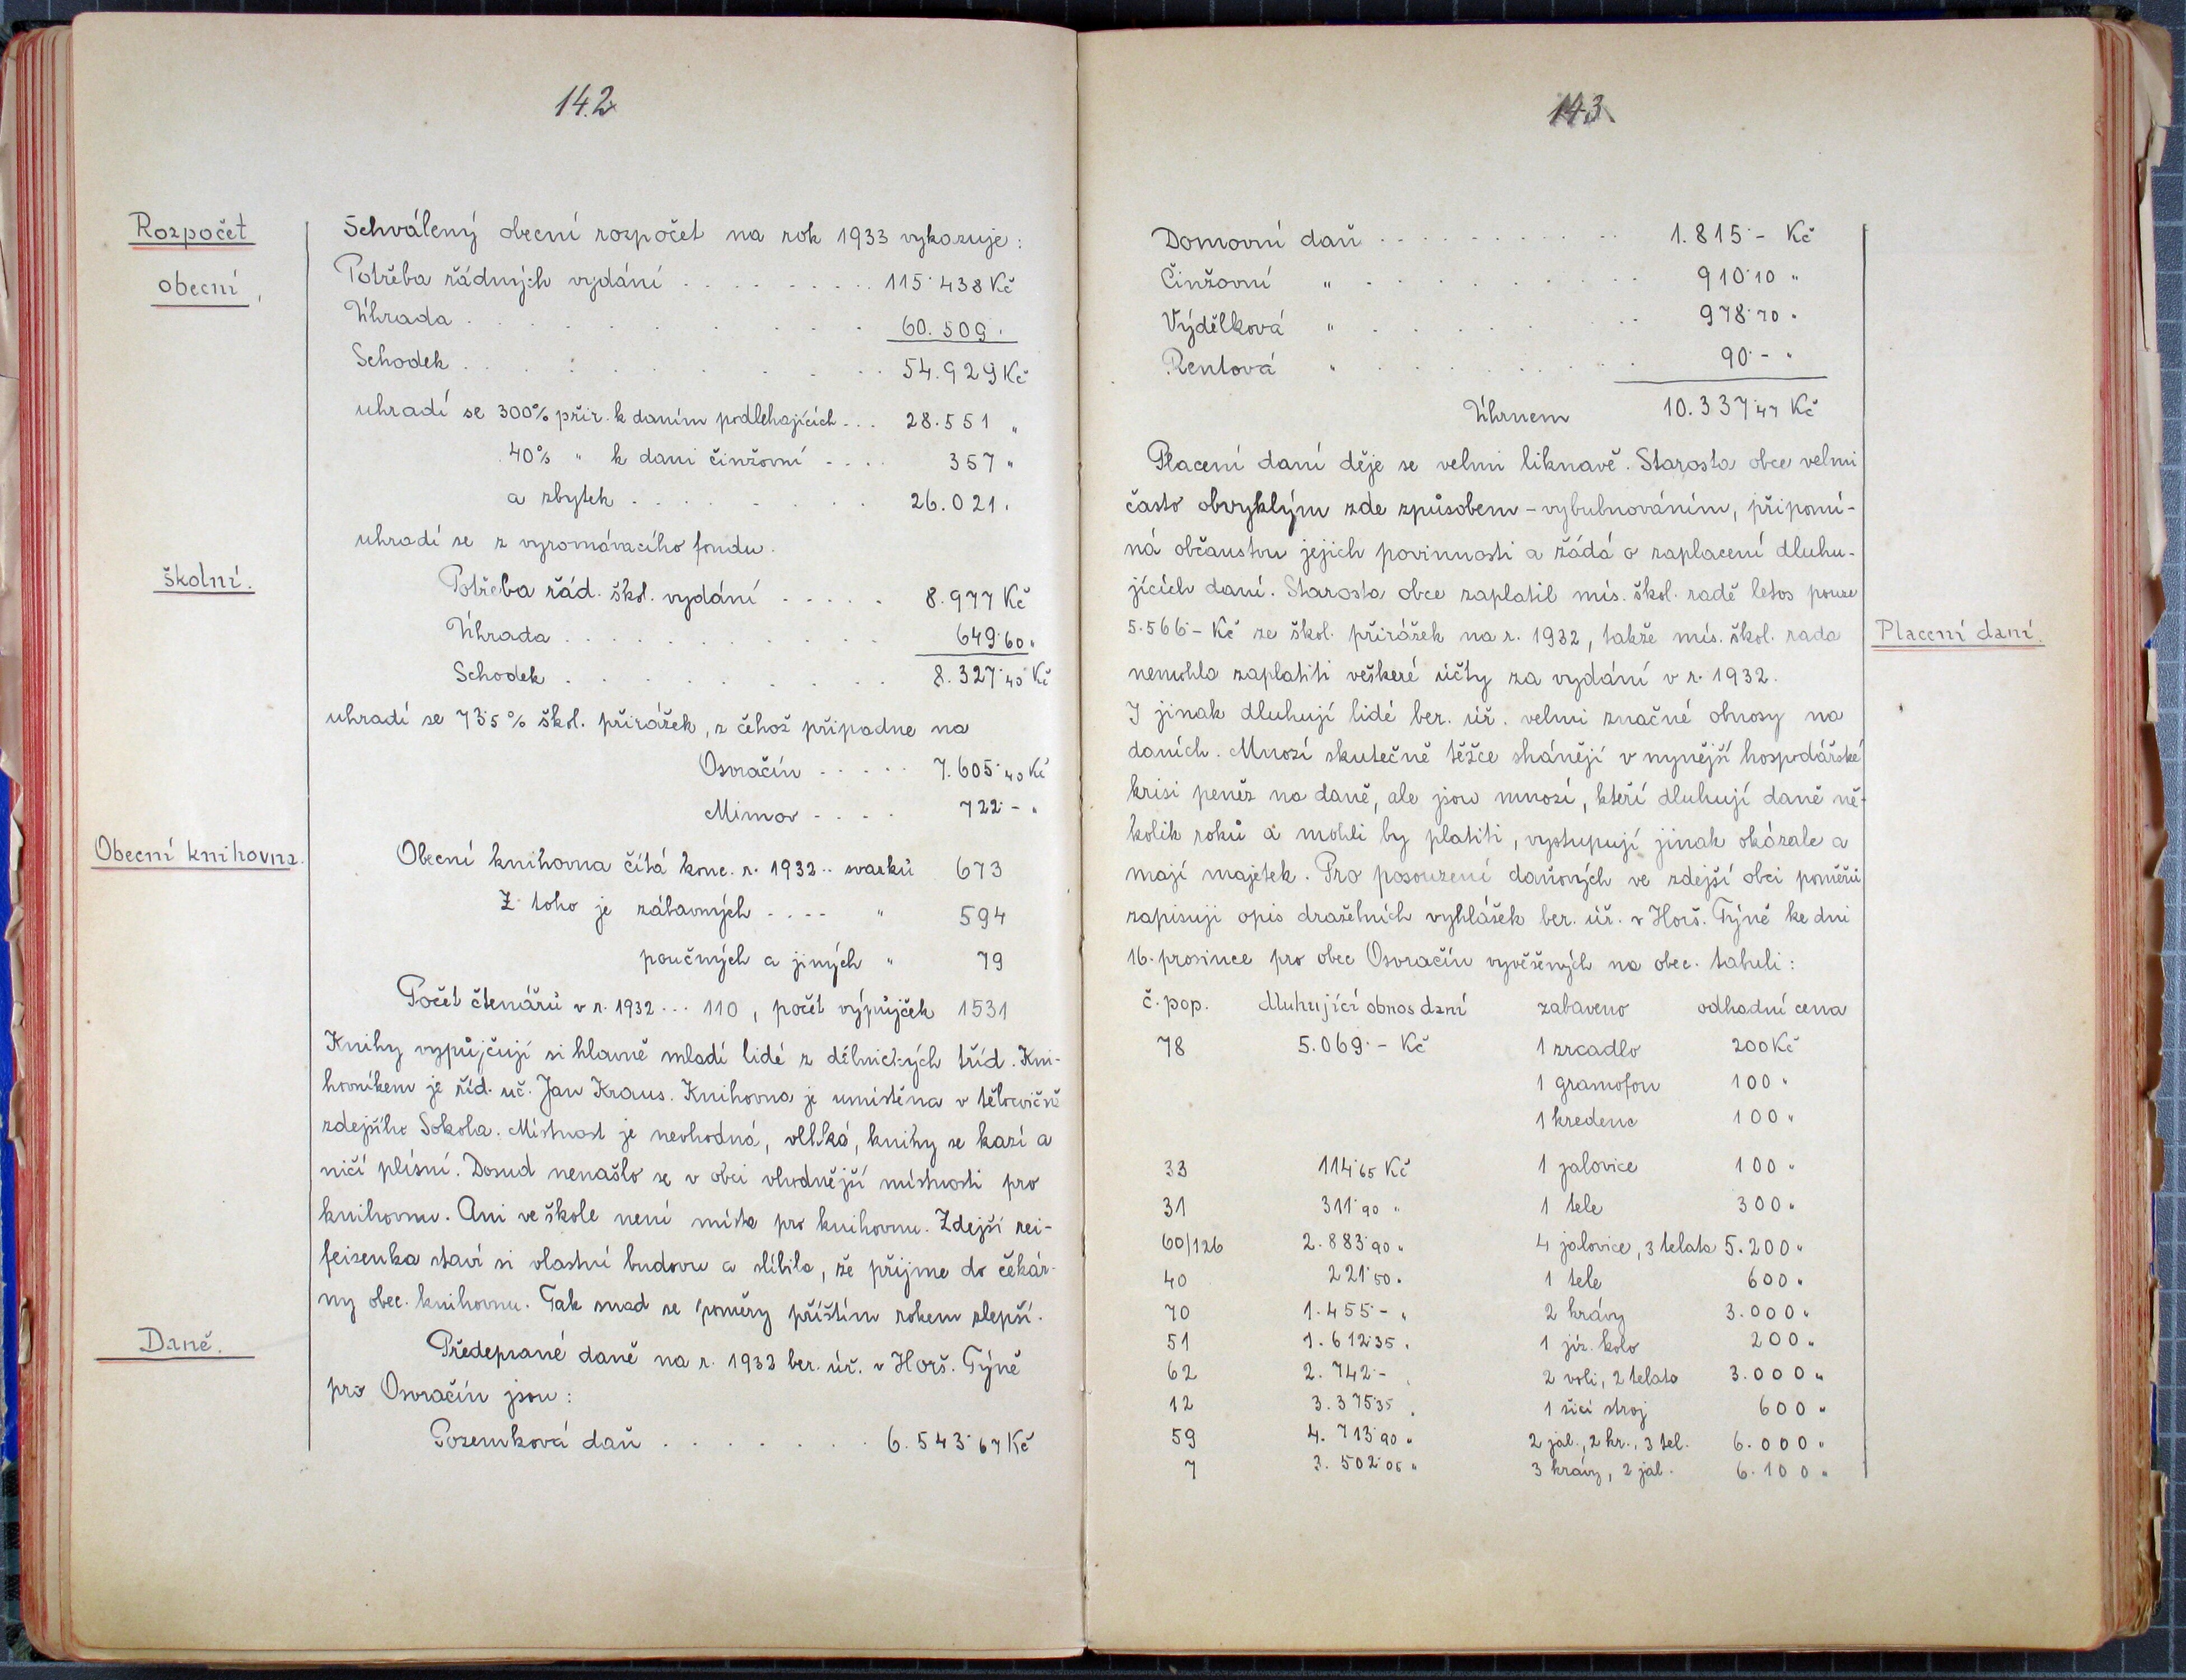 142
Rozpočet
obecní,
Schválený obecní rozpočet na rok 1933 vykazuje:
Potřeba řádných vydání . . . . . . . . . 115.438 Kč
Úhrada . . . . . . . . . 60.509 "
Schodek . . . . . . . . . 54.929 Kč
uhradí se 300% přir. k daním podlehajících . . . 28.551 "
40% " k dani činžovní . . . . 357 "
a zbytek . . . . . . . 26.021 "
uhradí se z vyrovnávacího fondu.
školní.
Potřeba řád. škol. vydání . . . . . 8.977 Kč
Úhrada . . . . . . . . . 649.60 "
Schodek . . . . . . . . . 8.327.40 Kč
uhradí se 73.5% škol. přirážek, z čehož připadne na
Osvračín . . . . . 7.605.40 Kč
Mimov . . . . 722.- "
Obecní knihovna.
Obecní knihovna čítá konc. r. 1932 .. svazků 673
Z toho je zábavných . . . . " 594
poučných a jiných " 79
Počet čtenářů v r. 1932 ... 110, počet výpůjček 1531
Knihy vypůjčují si hlavně mladí lidé z dělnických tříd. Kni-
hovníkem je říd. uč. Jan Kraus. Knihovna je umístěna v tělocvičně
zdejšího Sokola. Místnost je nevhodná, vlhká, knihy se kazí a
ničí plísní. Dosud nenašlo se v obci vhodnější místnosti pro
knihovnu. Ani ve škole není místa pro knihovnu. Zdejší rei-
feizenka staví si vlastní budovu a slíbila, že přijme do čekár-
ny obec. knihovnu. Tak snad se poměry příštím rokem zlepší.
Daně.
Předepsané daně na r. 1932 ber. úř. v Horš. Týně
pro Osvračín jsou:
Pozemková daň . . . . . . . . 6.543.67 Kč
143
Domovní daň . . . . . . . . . . 1.815.- Kč
Činžovní " . . . . . . . . . 910.10 "
Výdělková " . . . . . . . 978.70 "
Rentová " . . . . . . . . . 90.- "
Úhrnem 10.337.47 Kč
Placení daní děje se velmi liknavě. Starosta obce velmi
často obvyklým zde způsobem - vybubnováním, připomí-
ná občanstvu jejich povinnosti a žádá o zaplacení dluhu-
jících daní. Starosta obce zaplatil mís. škol. radě letos pouze
5.566.- Kč ze škol. přirážek na r. 1932, takže mís. škol. rada
Placení daní.
nemohla zaplatiti veškeré účty za vydání v r. 1932.
I jinak dluhují lidé ber. úř. velmi značné obnosy na
daních. Mnozí skutečně těžce shánějí v nynější hospodářské
krisi peněz na daně, ale jsou mnozí, kteří dluhují daně ně-
kolik roků a mohli by platiti, vystupují jinak okázale a
mají majetek. Pro posouzení daňových ve zdejší obci poměrů
zapisuji opis dražebních vyhlášek ber. úř. v Horš. Týně ke dni
16. prosince pro obec Osvračín vyvěšených na obec. tabuli:
č. pop. dluhující obnos daní zabaveno odhadní cena
78 5.069.- Kč 1 zrcadlo 200 Kč
1 gramofon 100 "
1 kredenc 100 "
33 114.65 Kč 1 jalovice 100 "
31 311.90 " 1 tele 300 "
60/126 2.883.90 " 4 jalovice, 3 telata 5.200 "
40 221.50 " 1 tele 600 "
70 1.455.- " 2 krávy 3.000 "
51 1.612.35 " 1 jíz. kolo 200 "
62 2.742.- " 2 voli, 2 telata 3.000 "
12 3.375.35 " 1 šicí stroj 600 "
59 4.713.90 " 2 jal., 2 kr., 3 tel. 6.000 "
7 3.502.06 " 3 krávy, 2 jal. 6.100 "